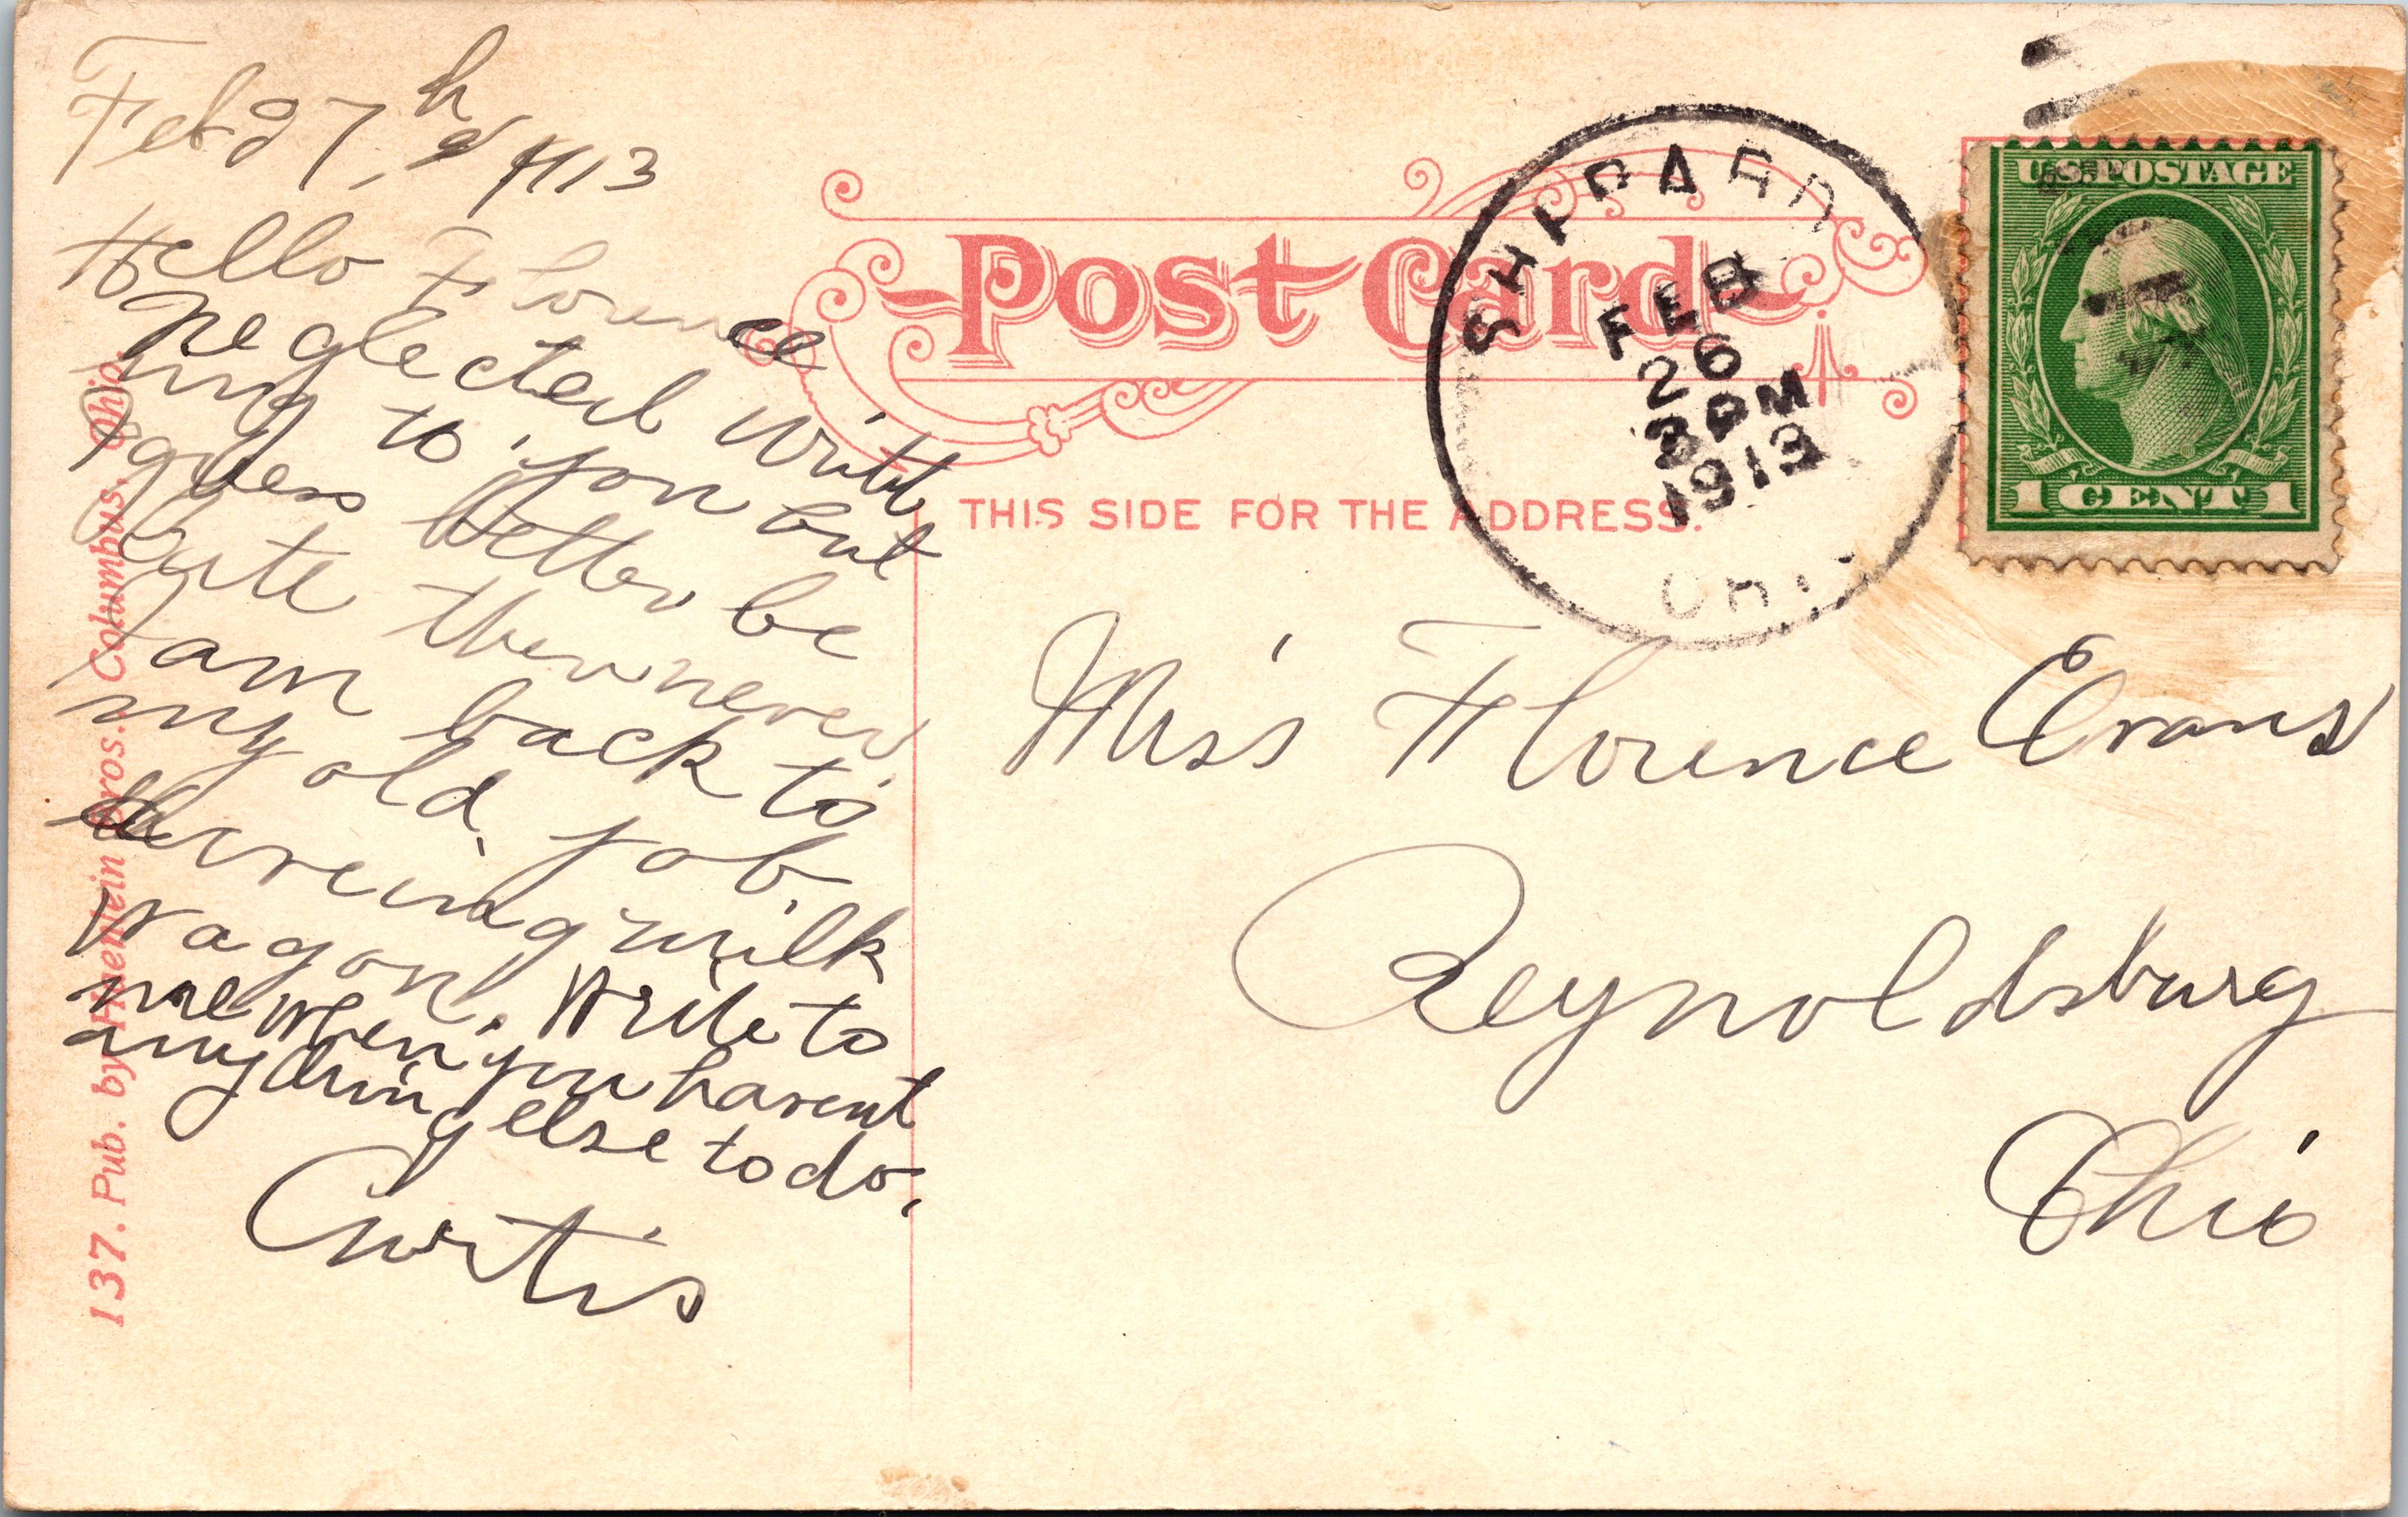 Feb 27, 1913
Hello Florence
neglected writt
ing to you but
I guess better be
late then never
I am back to
my old job.
driveing milk
wagon. Write to
me when you havent
anything else to do.
Curtis
137. Pub. by Haenlein Bros. Columbus, Ohio.
Post Card
THIS SIDE FOR THE ADDRESS.
SHEPARD
FEB
26
3 PM
1913
OHIO
U.S. POSTAGE
1 CENT 1
Miss Florence Evans
Reynoldsburg
Ohio